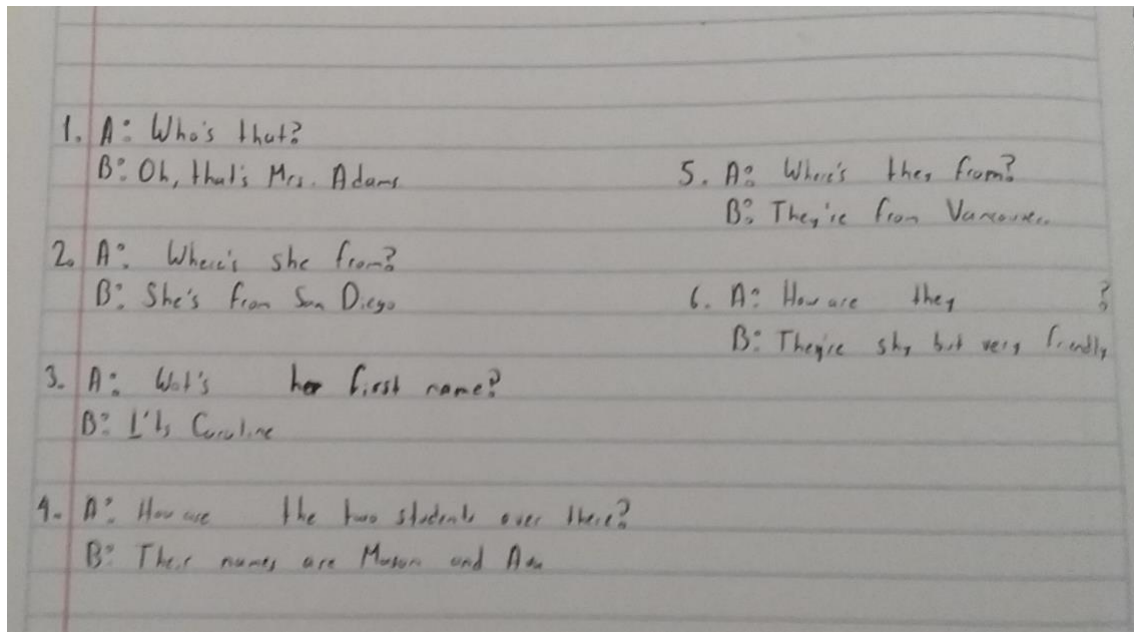 1. A: Who's that?
B: Oh, that's Mrs. Adams
2. A: Where's she from?
B: She's from San Diego
3. A: Wat's her first name?
B: It's Caroline
4. A: How are the two students over there?
B: Their names are Mason and
5. A: Where's they from?
B: They're from Vancouver.
6. A: How are they ?
B: They're shy but very friendly